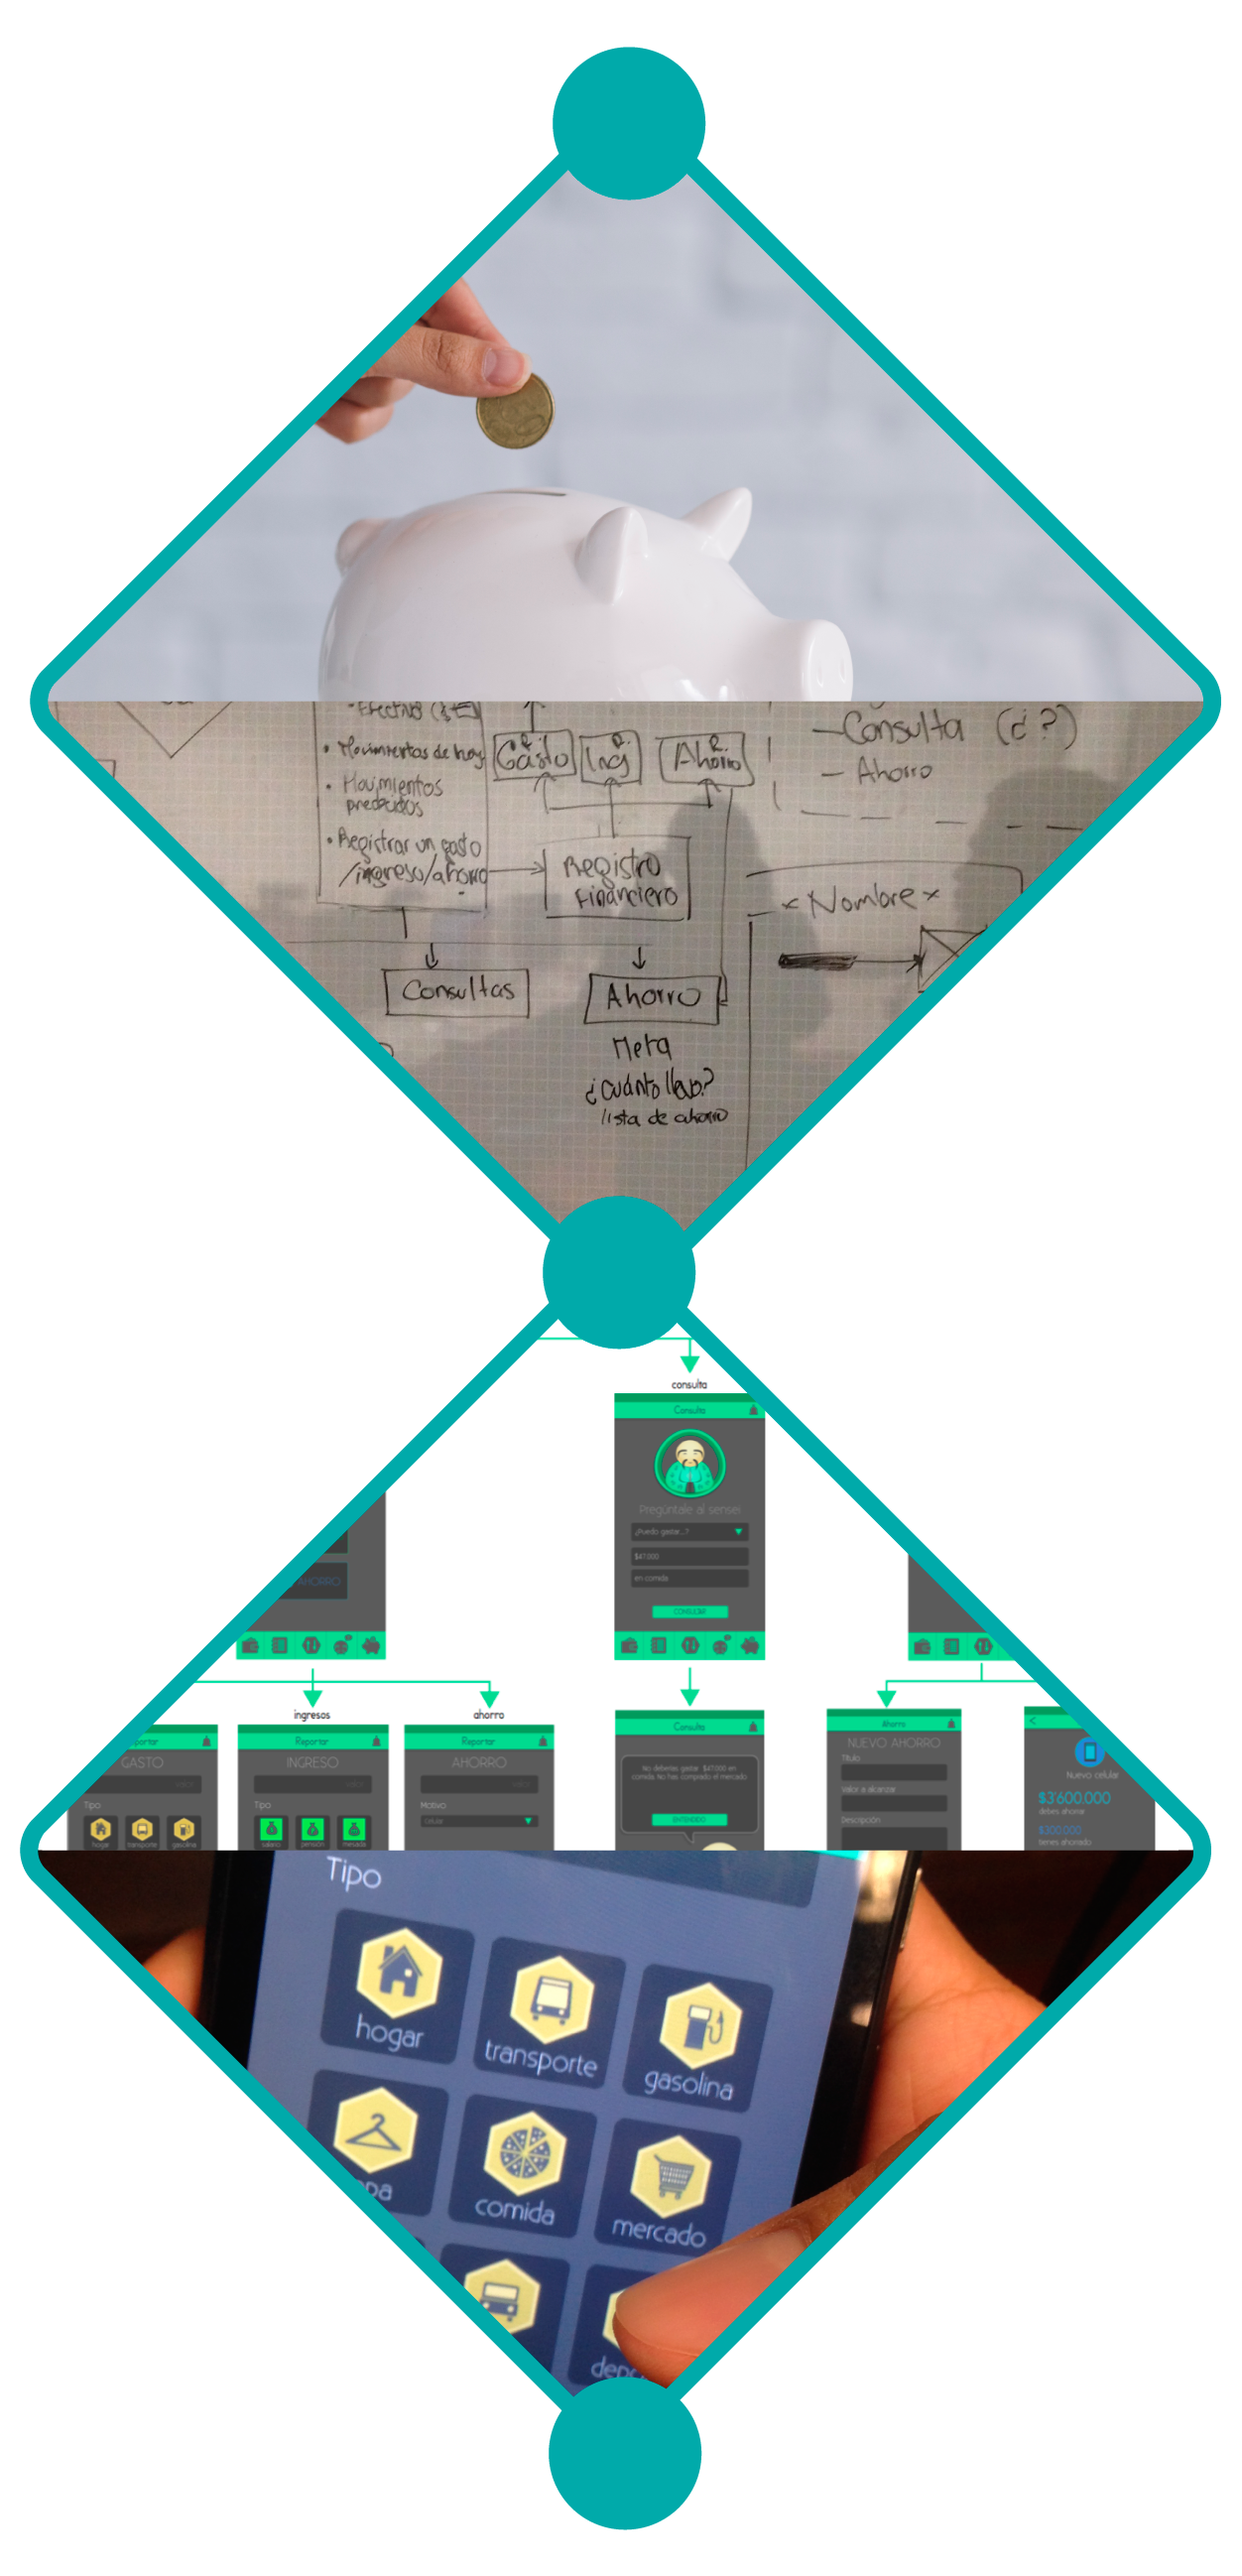 • Efectivo ($
• Movimientos de hoy
• Movimientos
predecidos
• Registrar un gasto
/ingreso/ahorro
Gasto
Ing
Ahorro
Registro
Financiero
Consultas
Ahorro
Meta
¿Cuánto llevo?
lista de ahorro
– Consulta (¿?)
– Ahorro
< Nombre >
consulta
Consulta
Pregúntale al sensei
¿Puedo gastar...?
$47.000
en comida
CONSULTAR
AHORRO
ingresos
ahorro
Reportar
GASTO
valor
Tipo
hogar
transporte
gasolina
Reportar
INGRESO
valor
Tipo
salario
pensión
mesada
Reportar
AHORRO
valor
Motivo
Celular
Consulta
No deberías gastar $47.000 en
comida. No has comprado el mercado
ENTENDIDO
Ahorro
NUEVO AHORRO
Título
Valor a alcanzar
Descripción
<
Nuevo celular
$3'600.000
debes ahorrar
$300.000
tienes ahorrado
Tipo
hogar
transporte
gasolina
opa
comida
mercado
depo